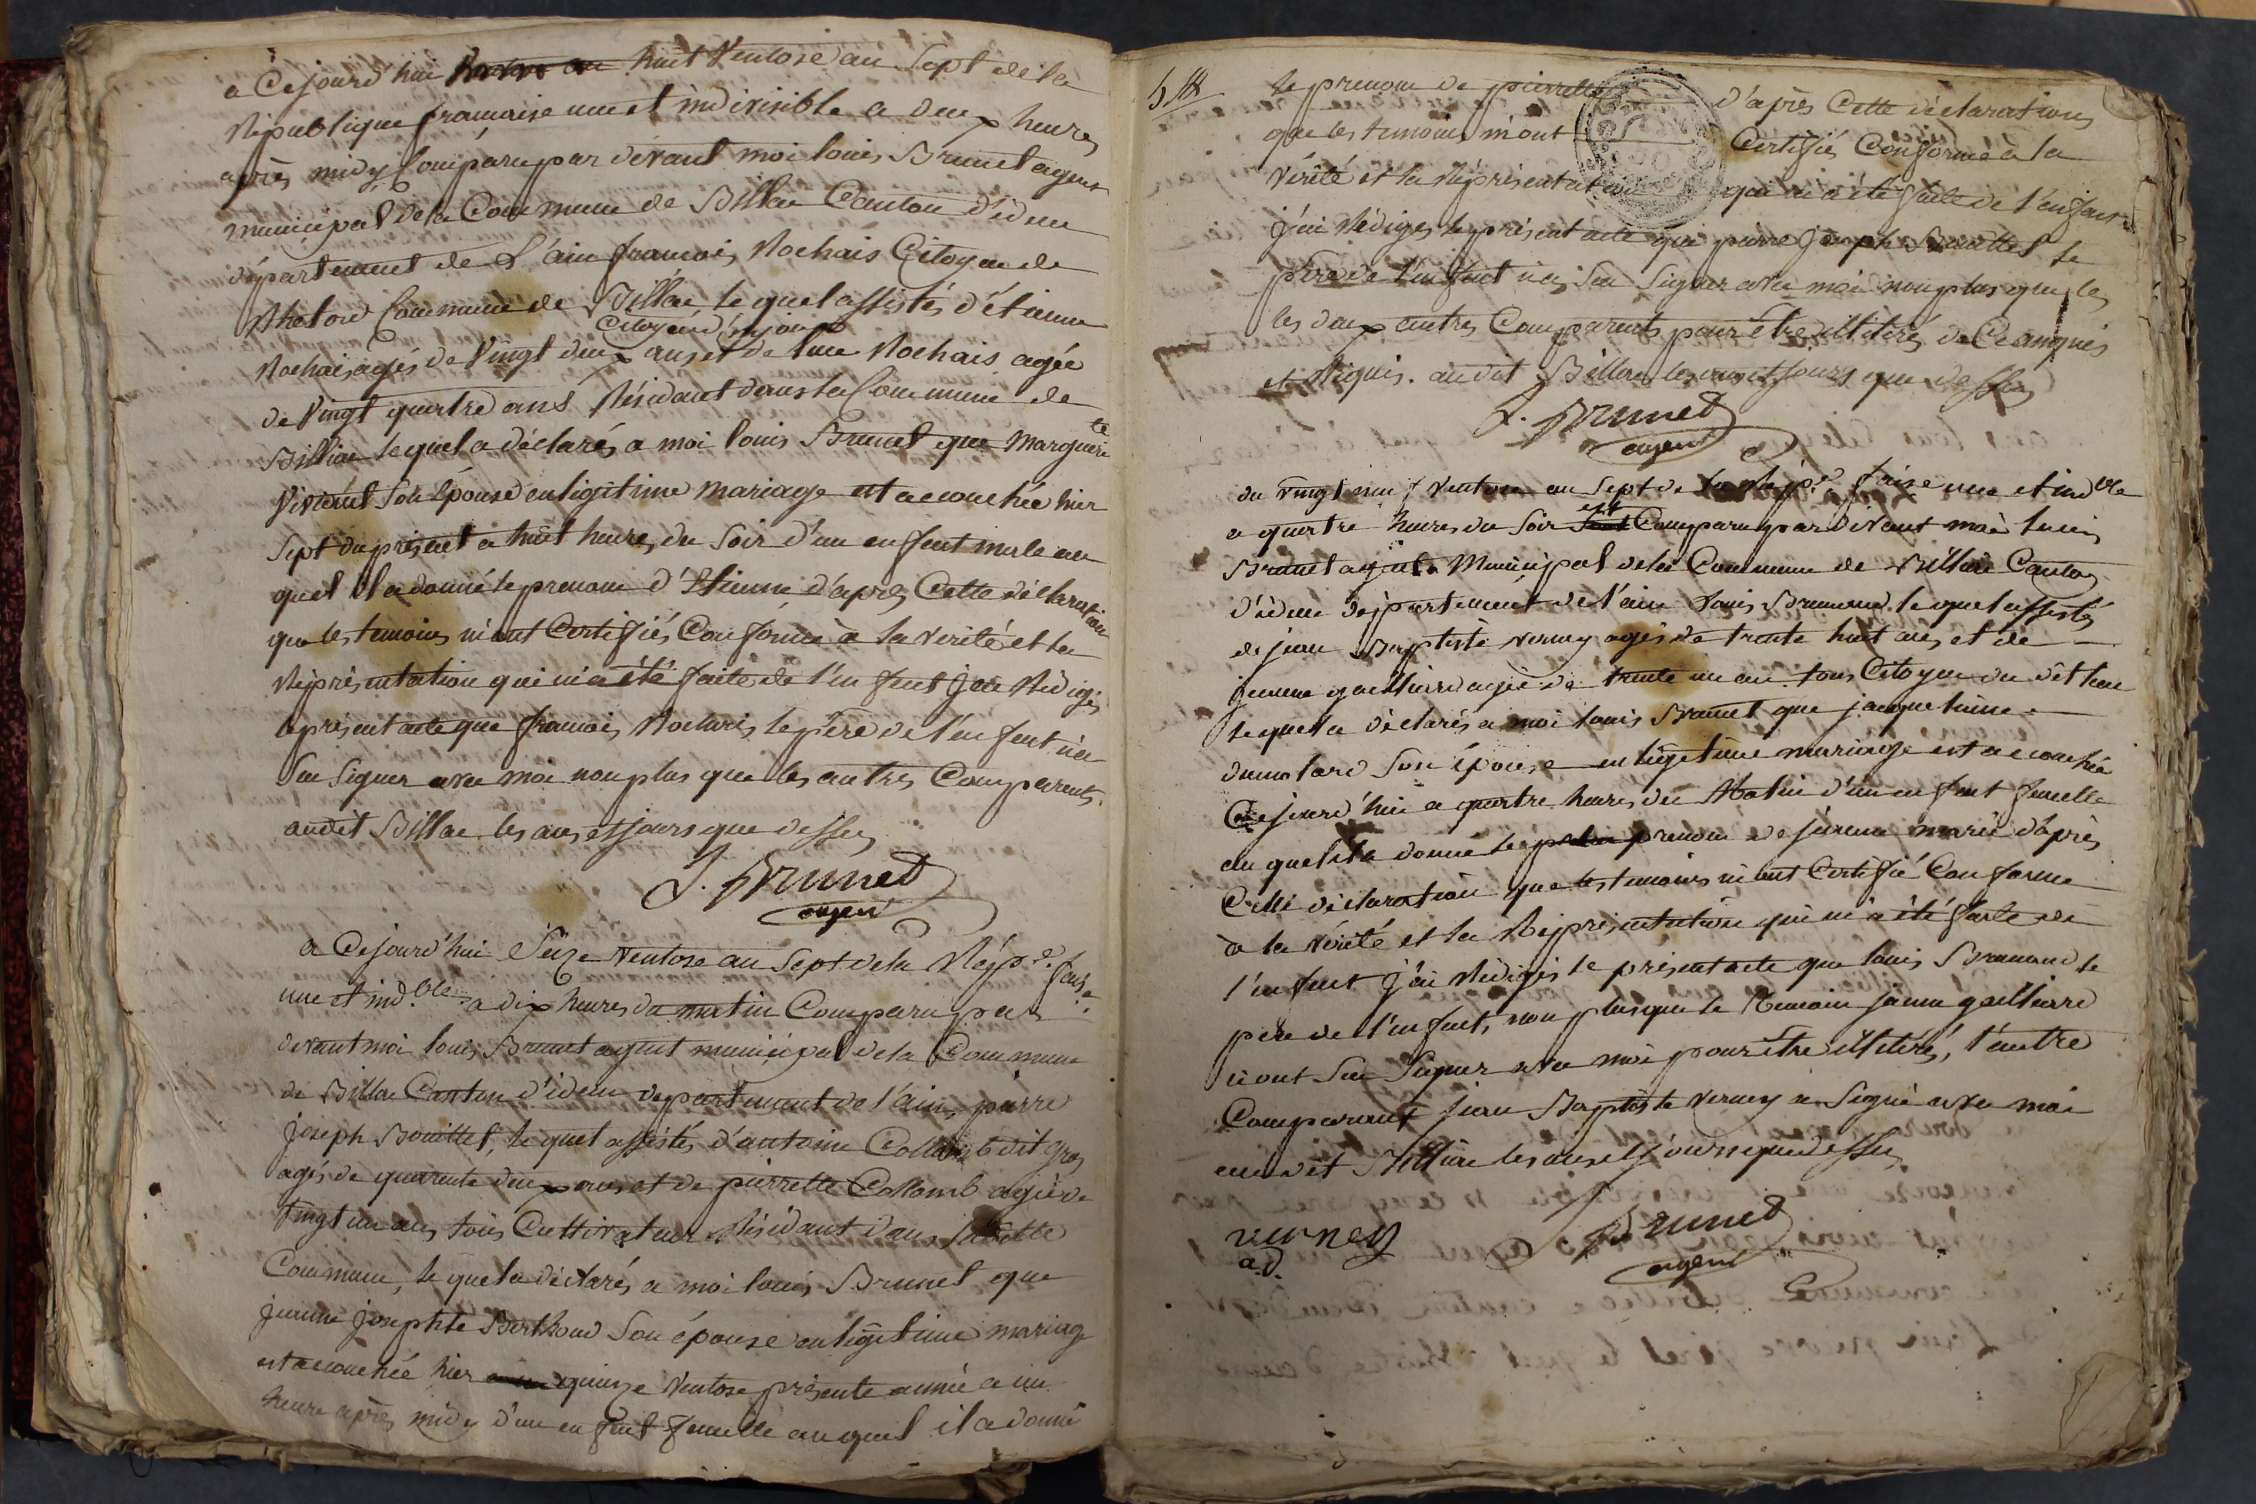 a Cejourd'hui huit Ventose an Sept de la
République francaise une et indivisible a deux heures
après midy Comparu par devant moi louis Brunet agent
municipal de la Commune de Billia Canton d'idem
département de L'ain francois Rochais Citoyen de
Commune de Billia le quel assistés d'étienne
Citoyen
Rochais agés de Vingt deux ans et de Rochais agée
de Vingt quatre ans Résidant dans la Commune de
Billia le quel a déclarés a moi louis Brunet que Marguerite
Son épouse en ligitime mariage est acouchée hier
Sept du présent a huit heures du Soir d'un enfant male au
quel il a donné le prenom d'Etienne d'après Cette déclaration
que les temoins m'ont Certifiés Conforme à la verité et la
Représentation qui m'a été faite de l'enfant J'ai Rédigés
le présent acte que francois Rochais le père de l'enfant n'a
Su Signer avec moi non plus que les autres Comparents.
audit Billia les ans et jours que dessus
L. Brunet
agent
a Cejourd'hui Seize ventose an Sept de la Rép.e fais.e
une et ind.ble a dix heures du matin Comparu par
devant moi louis Brunet agent municipal de la Commune
de Billia Canton d'idem departement de l'ain, pierre
Joseph Bouillet, le quel assistés d'antoine Collomb dit gros
agés de quarente deux ans et de pierrette Collomb agée de
Vingt un ans tous Cultivateur Résidant dans la ditte
Commune, le quel a déclarés a moi louis Brunet que
jeanne josephte Berthoud Son épouse en ligitime mariage
est acouchée hier quinze Ventose présente année a un
heure après midy d'un enfant femelle au quel il a donné
le prenom de pierrette d'après Cette déclaration
que les temoins m'ont Certifiés Conforme à la
Vérité et la Représentation qui m'a été faite de l'enfant
j'ai Rédiges le présent acte que pierre Joseph Bouillet le
père de l'enfant n'a Su Signer avec moi non plus que les
les deux autres Comparents pour être illitérés de Ce anquis
et Réquis. audit Billia les ans et jours que dessus
L. Brunet
agent
du Vingt neuf Ventose an Sept de la Rép.e frise une et ind.ble
est
a quatre heures du Soir Comparu par devant moi louis
Brunet agent Municipal de la Commune de Billia Canton
d'idem departement de l'ain louis Brunand le quel assistés
de jean Baptiste Verney agés de trente huit ans et de
jeanne gaillard agée de trente un an tous Citoyen du dit lieu
le quel a déclarés a moi louis Brunet que jacqueline
dumolard Son épouse en ligitime mariage est acouchée
Cejourd'hui a quatre heures du Matin d'un enfant femelle
au quel il a donné le prenom de jeanne marie d'après
Cette déclaration que les temoins m'ont Certifié Conforme
à la Vérité et la Représentation qui m'a été faite de
l'enfant j'ai Rédigés le présent acte que louis Brunand le
père de l'enfant, non plus que le temoin jeanne gaillard
n'ont Su Signer avec moi pour être illitérés, l'autre
Comparant jean Baptiste Verney a Signé avec moi
audit Billia les ans et jours que dessus
verney
a.d.
L. Brunet
agent